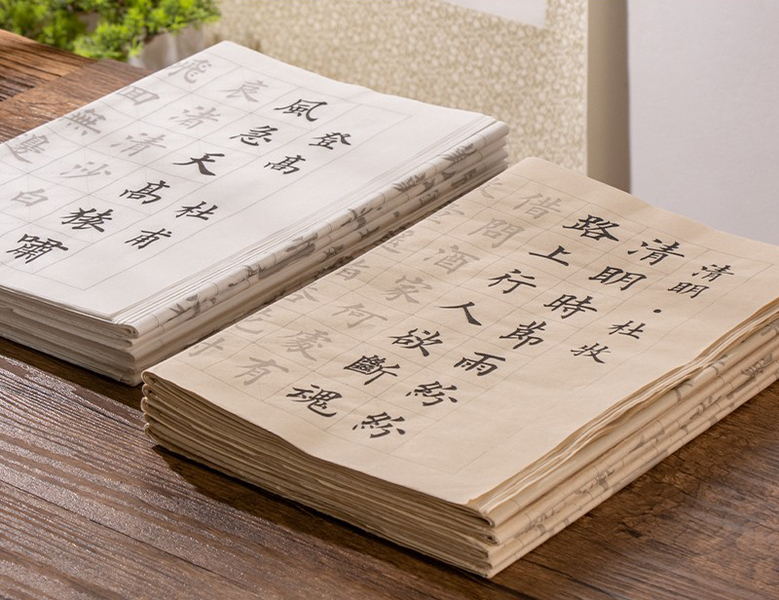 登高
杜甫
風急天高猿嘯
哀渚清沙白
飛回無邊
清明·杜牧
清明時節雨紛紛
路上行人欲斷魂
借問酒家何處有